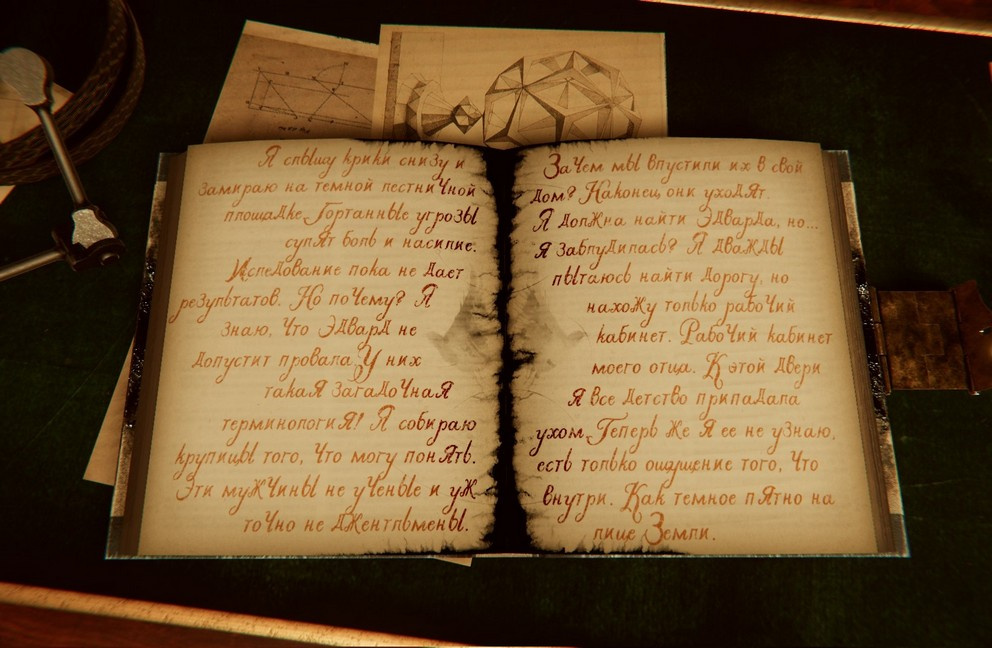 Я слышу крики снизу и
замираю на темной лестничной
площадке. Гортанные угрозы
сулят боль и насилие.
Исследование пока не дает
результатов. Но почему? Я
знаю, что Эдвард не
допустит провала. У них
такая загадочная
терминология! Я собираю
крупицы того, что могу понять.
Эти мужчины не ученые и уж
точно не джентльмены.
Зачем мы впустили их в свой
дом? Наконец они уходят.
Я должна найти Эдварда, но...
Я заблудилась? Я дважды
пытаюсь найти дорогу, но
нахожу только рабочий
кабинет. Рабочий кабинет
моего отца. К этой двери
я все детство припадала
ухом. Теперь же я ее не узнаю,
есть только ощущение того, что
внутри. Как темное пятно на
лице Земли.